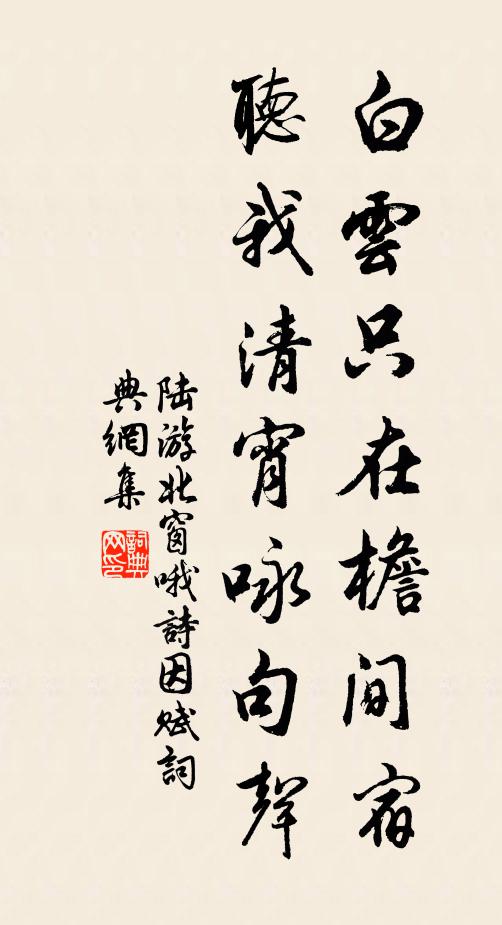 白雲只在檐間宿
聽我清宵咏句聲
陆游北窗哦詩因赋詞
典網集
詞典
网印